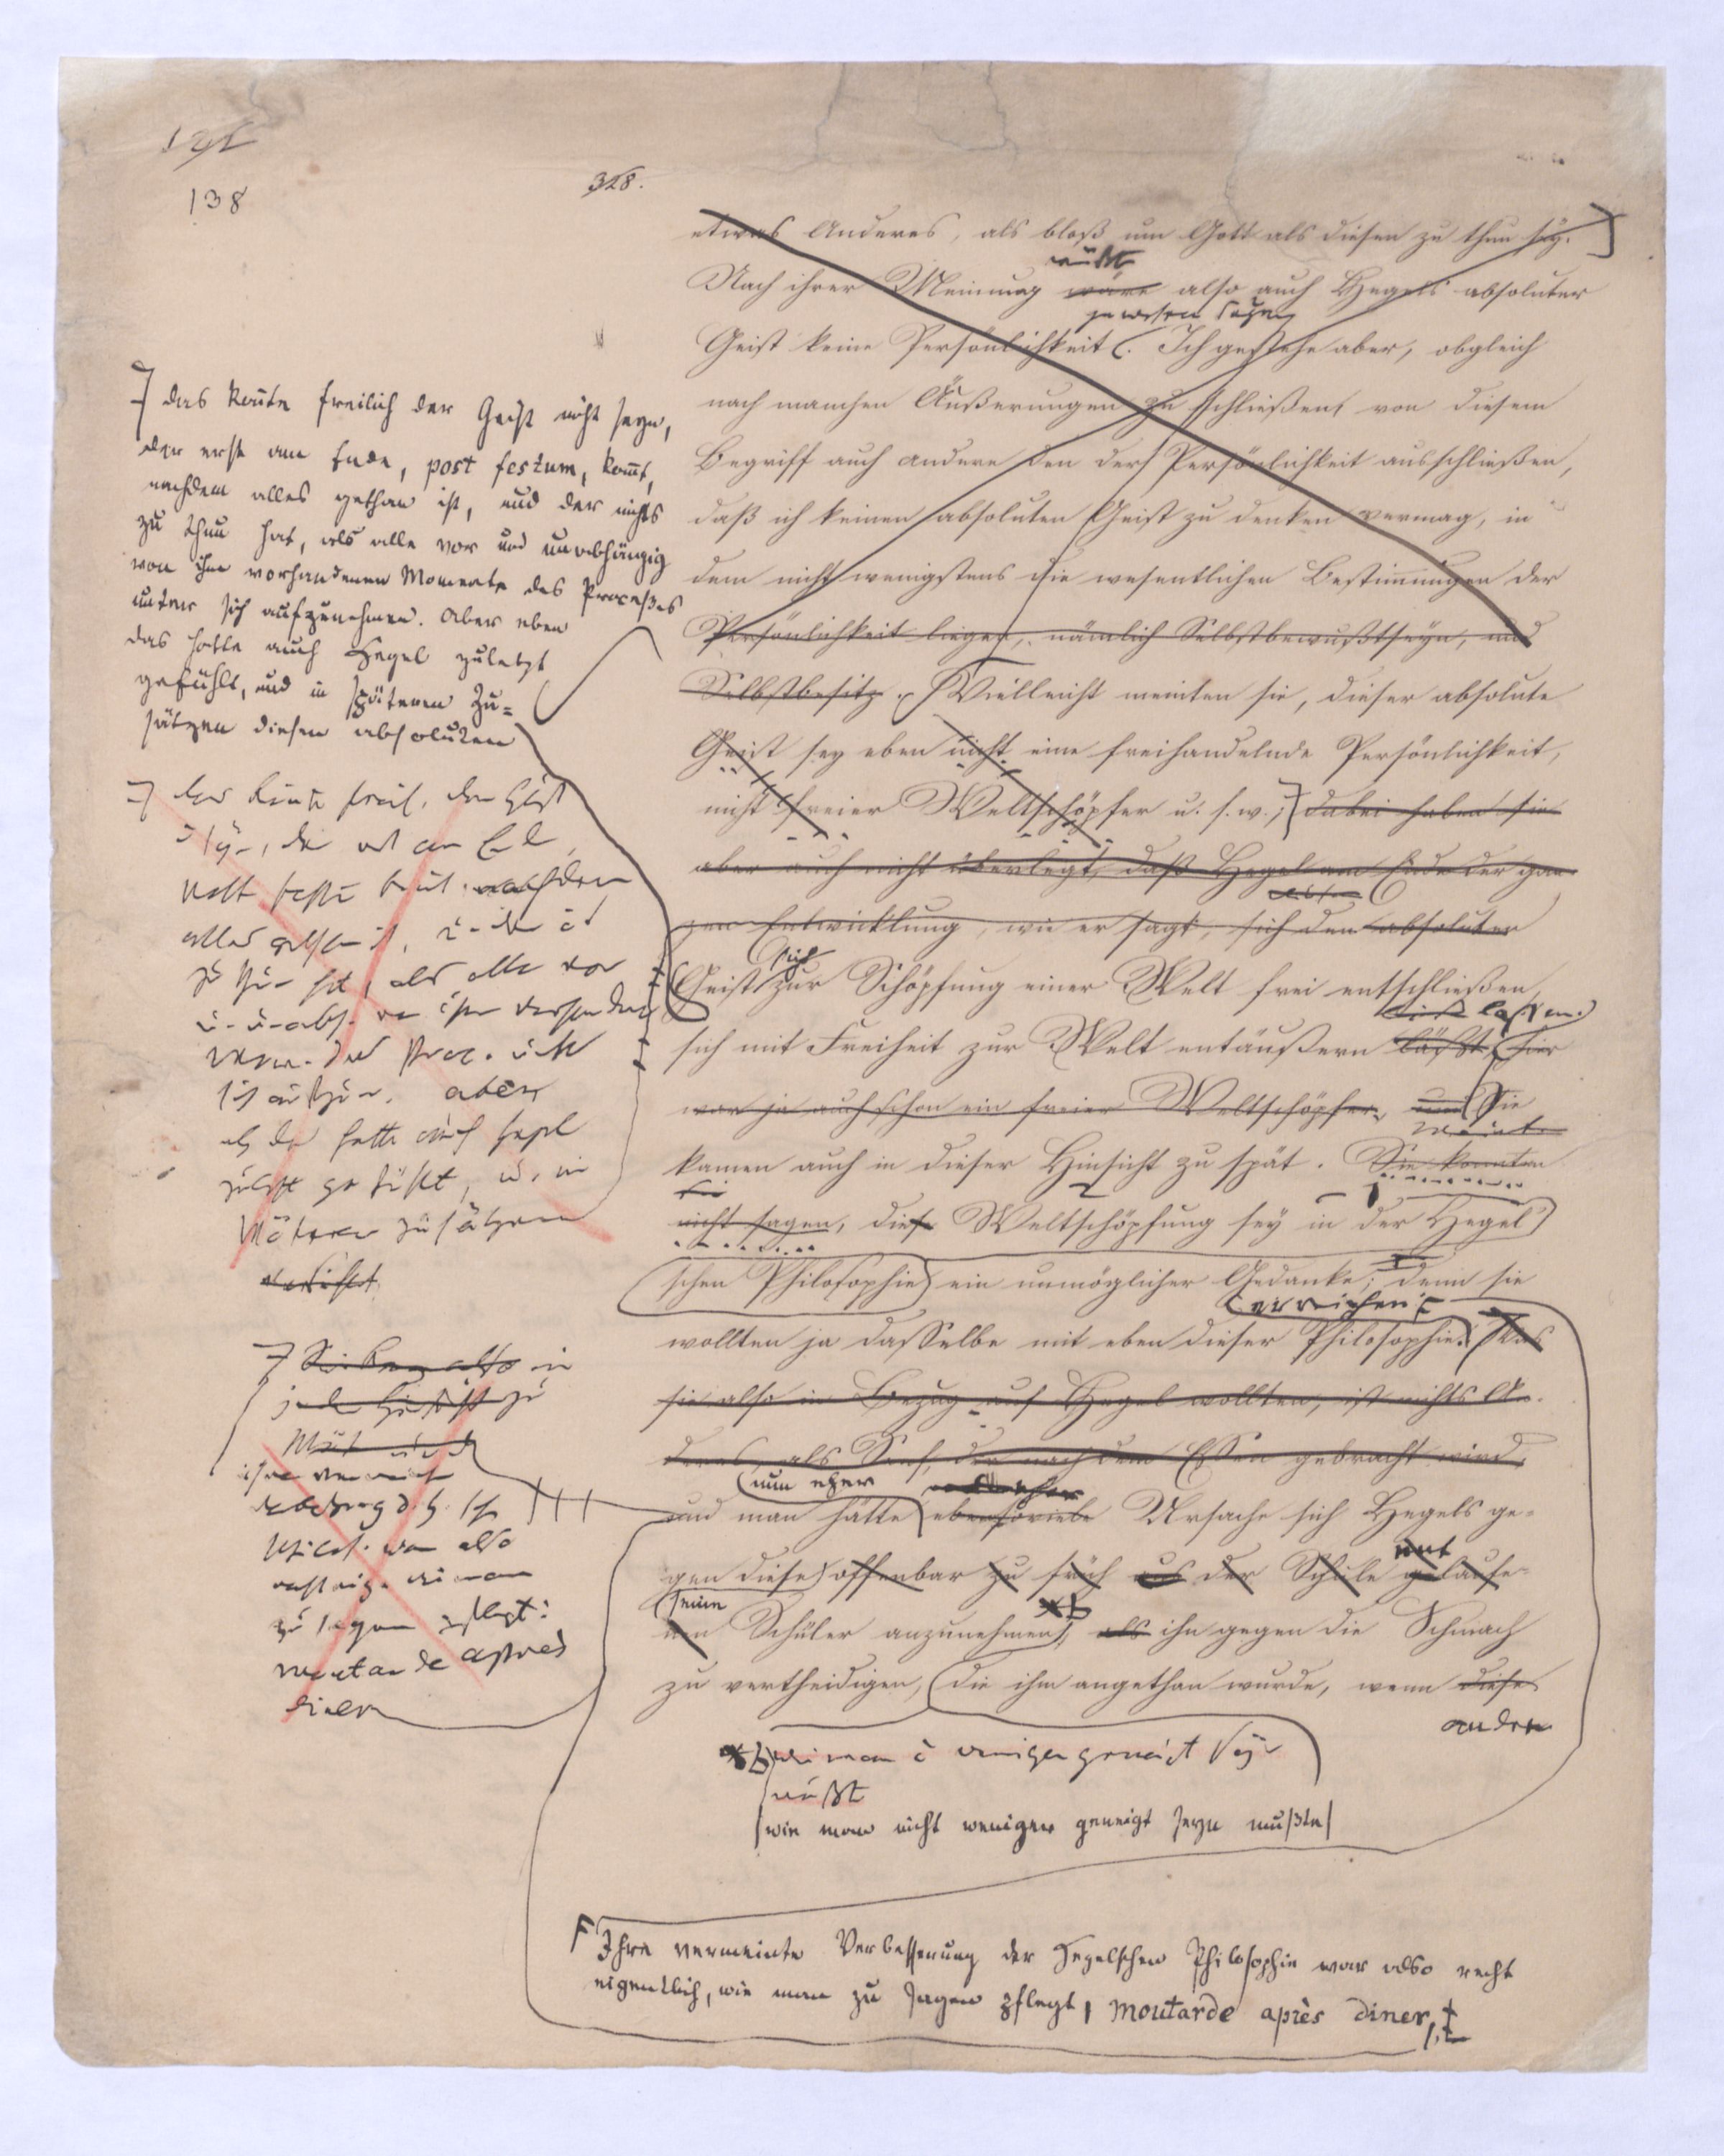 138
328.
etwas Anderes, als bloß um Gott als diesen zu thun sey.
müßte
Nach ihrer Meinung wäre also auch Hegels absoluter
gewesen seyn
Geist keine Persönlichkeit. Ich gestehe aber, obgleich
nach manchen Äußerungen zu schließen, von diesem
Begriff auch andere den der Persönlichkeit ausschließen,
daß ich keinen absoluten Geist zu denken vermag, in
dem nicht wenigstens die wesentlichen Bestimmungen der
Persönlichkeit liegen, nämlich Selbstbewußtseyn, und
Selbstbesitz. Vielleicht meinten sie, dieser absolute
Geist sey eben nicht eine freihandelnde Persönlichkeit,
nicht freier Weltschöpfer u. s. w.; dabei haben sie
aber auch nicht überlegt, daß Hegel am Ende der gan-
zen Entwicklung, wie er sagt, sich den absoluten
sich
Geist zur Schöpfung einer Welt frei entschließen,
lassen.
sich mit Freiheit zur Welt entäußern läßt, hier
war ja auch schon ein freier Weltschöpfer, und Sie
kamen auch in dieser Hinsicht zu spät. Sie konnten
nicht sagen, diese Weltschöpfung sey in der Hegel
schen Philosophie ein unmöglicher Gedanke; denn sie
erreichen
wollten ja dasselbe mit eben dieser Philosophie. Was
sie also in Bezug auf Hegel wollten, ist nichts An-
deres, als Senf, der nach dem Essen gebracht wird,
nun eher
und man hätte ebensoviele Ursache sich Hegels ge-
gen diese offenbar zu früh aus der Schule gelaufe-
seine
nen Schüler anzunehmen, als ihn gegen die Schmach
zu vertheidigen, die ihm angethan wurde, wenn diese
andere
wie man nicht weniger geneigt seyn
müßte
wie man nicht weniger geneigt seyn mußte
F Ihre vermeinte Verbesserung der Hegelschen Philosophie war also recht
eigentlich, wie man zu sagen pflegt, moutarde après diner,
das konnte freilich der Geist nicht seyn,
der erst am Ende, post festum, kommt,
nachdem alles gethan ist, und der nichts
zu thun hat, als alle vor und unabhängig
von ihm vorhandenen Momente des Processes
unter sich aufzunehmen. Aber eben
das hatte auch Hegel zuletzt
gefühlt, und in späteren Zu-
sätzen diesen absoluten
alles gethan ist,
zu thun hat, als alle vor
aber
das hatte auch Hegel
zuletzt gefühlt, u. in
späteren Zusätzen
ihre vermeinte
Philos. war also
wie man
zu sagen pflegt:
moutarde après
diner